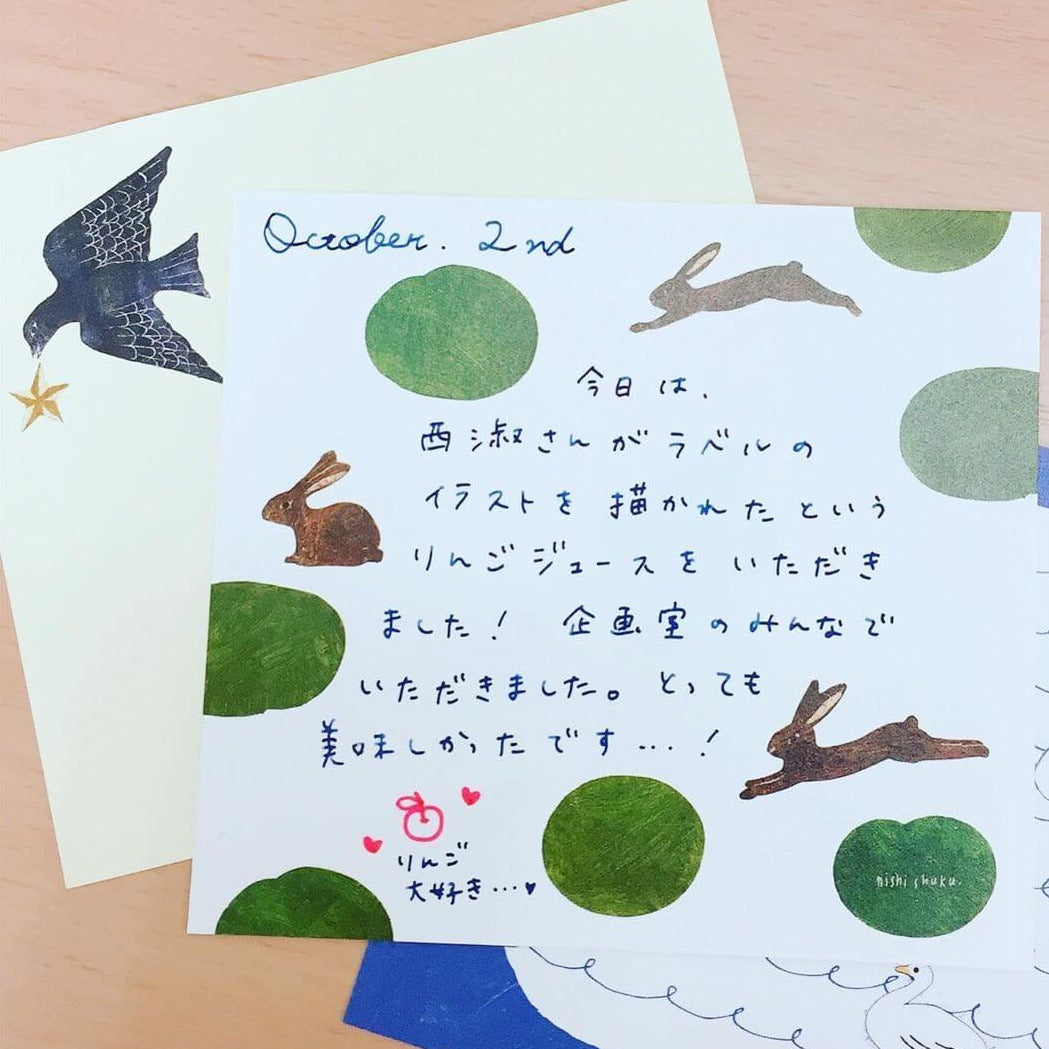 October. 2nd
今日は、
西淑さんがラベルの
イラストを描かれたという
りんごジュースをいただき
ました! 企画室のみんなで
いただきました。とっても
美味しかったです…!
りんご
大好き…♥
nishi shuku.